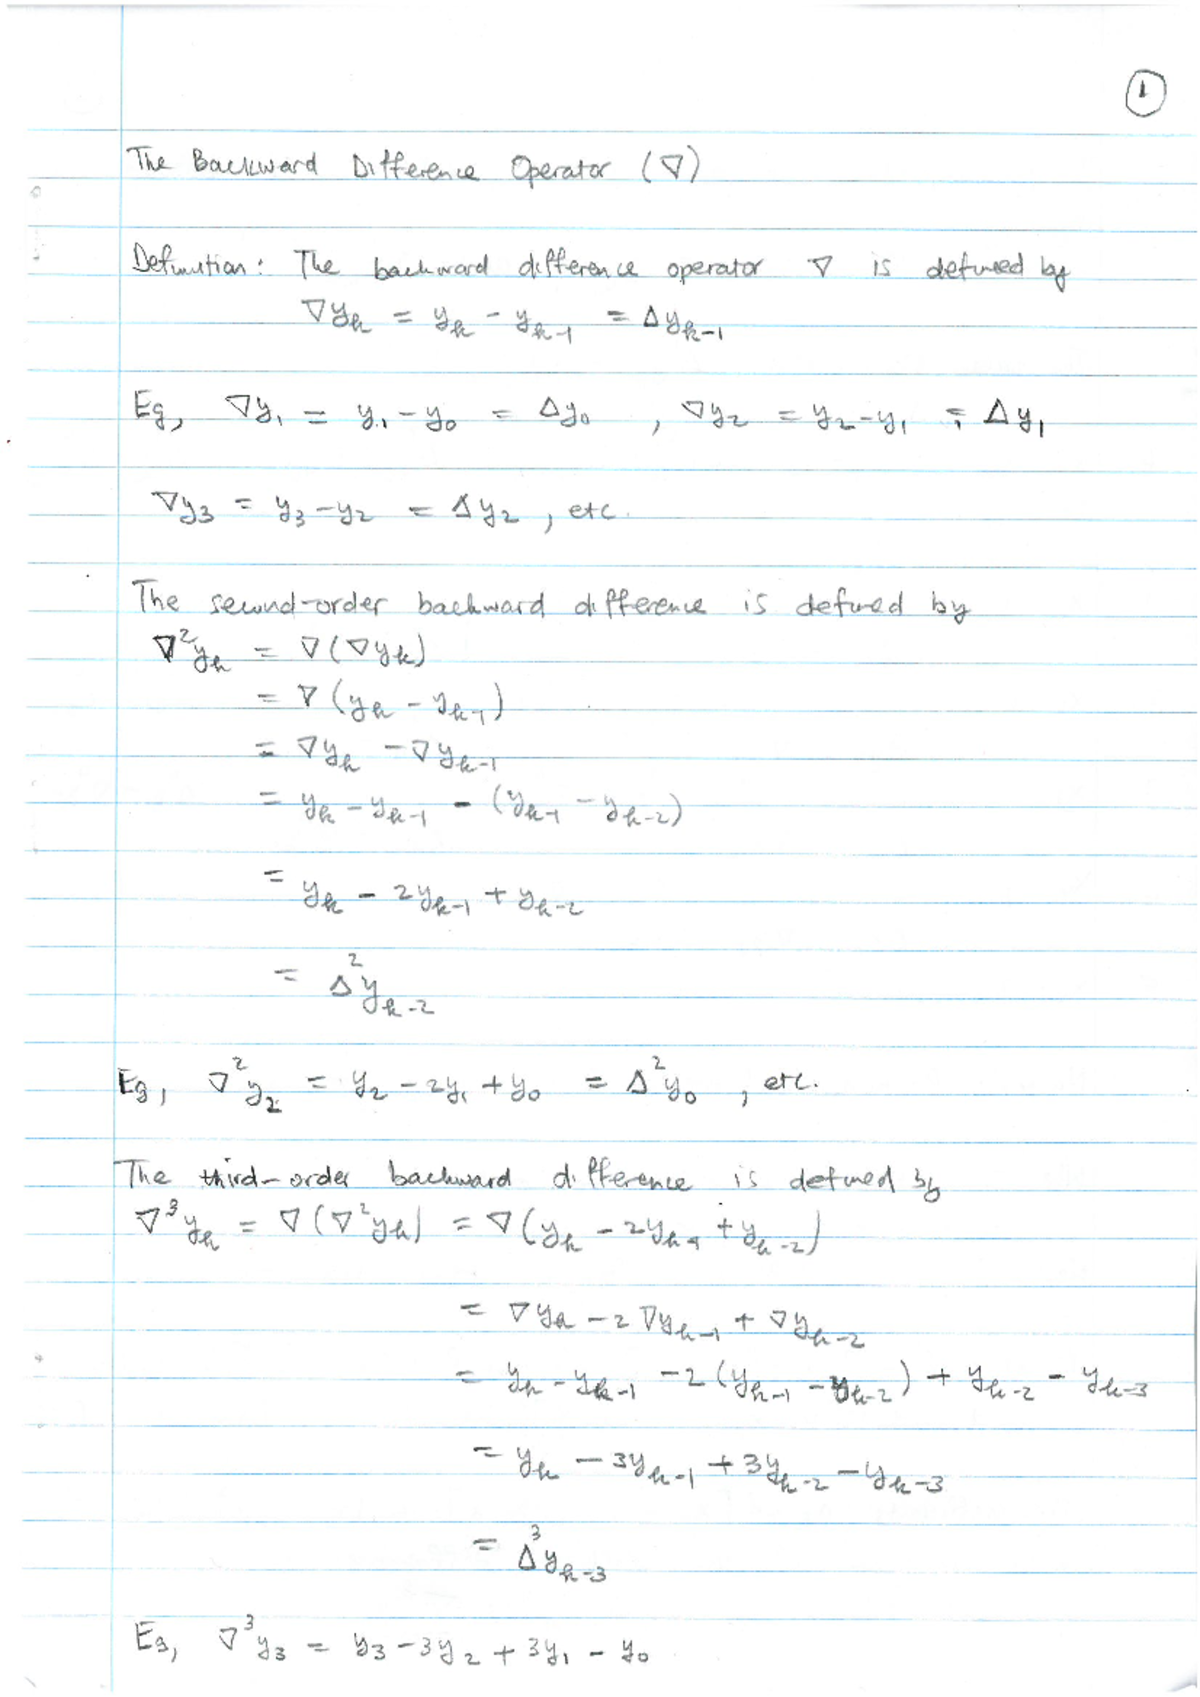 1
The Backward Difference Operator (∇)
Definition: The backward difference operator ∇ is defined by
∇y_k = y_k - y_{k-1} = Δy_{k-1}
Eg, ∇y_1 = y_1 - y_0 = Δy_0 , ∇y_2 = y_2 - y_1 = Δy_1
∇y_3 = y_3 - y_2 = Δy_2 , etc.
The second-order backward difference is defined by
∇^2 y_k = ∇(∇y_k)
= ∇(y_k - y_{k-1})
= ∇y_k - ∇y_{k-1}
= y_k - y_{k-1} - (y_{k-1} - y_{k-2})
= y_k - 2y_{k-1} + y_{k-2}
= Δ^2 y_{k-2}
Eg, ∇^2 y_2 = y_2 - 2y_1 + y_0 = Δ^2 y_0 , etc.
The third-order backward difference is defined by
∇^3 y_k = ∇(∇^2 y_k) = ∇(y_k - 2y_{k-1} + y_{k-2})
= ∇y_k - 2∇y_{k-1} + ∇y_{k-2}
= y_k - y_{k-1} - 2(y_{k-1} - y_{k-2}) + y_{k-2} - y_{k-3}
= y_k - 3y_{k-1} + 3y_{k-2} - y_{k-3}
= Δ^3 y_{k-3}
Eg, ∇^3 y_3 = y_3 - 3y_2 + 3y_1 - y_0